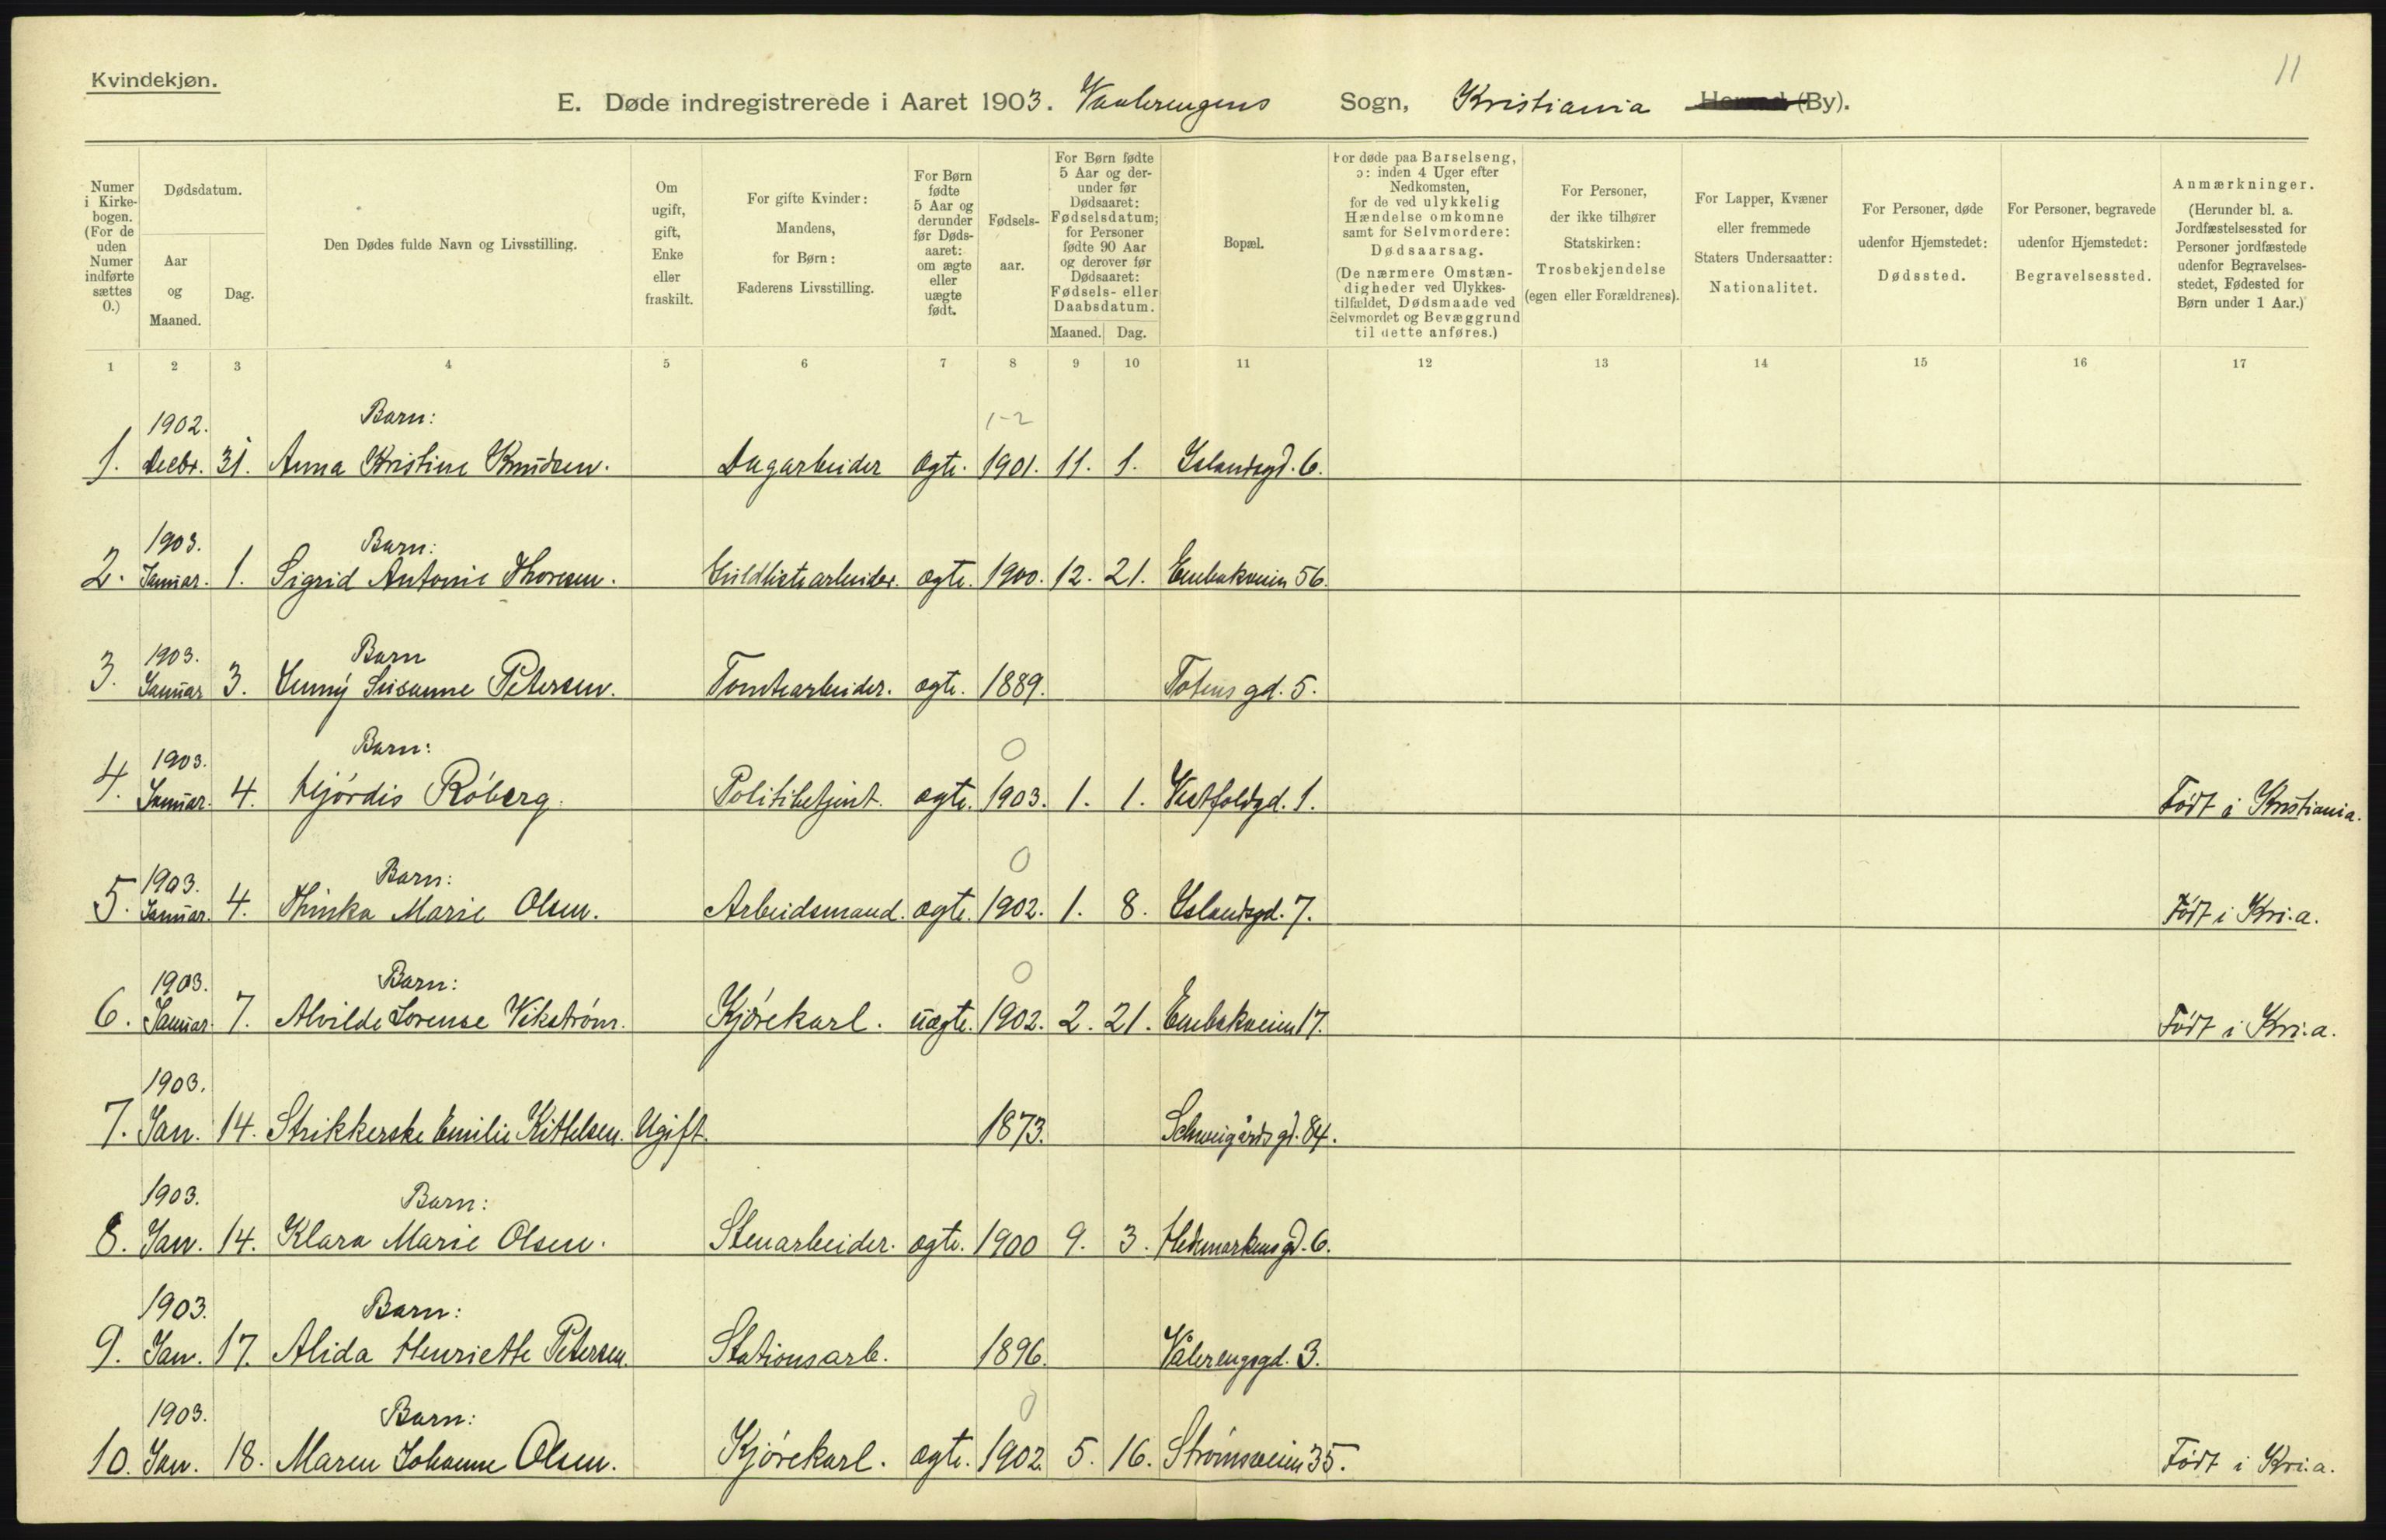 11
Kvindekjøn.
E. Døde indregistrerede i Aaret 1903. Vaalerengens Sogn, Kristiania (By).
Numer i Kirkebogen. (For de uden Numer indførte sættes 0.)
Dødsdatum.
Aar og Maaned.
Dag.
Den Dødes fulde Navn og Livsstilling.
Om ugift, gift, Enke eller fraskilt.
For gifte Kvinder: Mandens, for Børn: Faderens Livsstilling.
For Børn fødte 5 Aar og derunder før Dødsaaret: om ægte eller uægte født.
Fødselsaar.
For Børn fødte 5 Aar og derunder før Dødsaaret: Fødselsdatum; for Personer fødte 90 Aar og derover før Dødsaaret: Fødsels- eller Daabsdatum.
Maaned. Dag.
Bopæl.
For døde paa Barselseng, ɔ: inden 4 Uger efter Nedkomsten, for de ved ulykkelig Hændelse omkomne samt for Selvmordere: Dødsaarsag. (De nærmere Omstændigheder ved Ulykkestilfældet, Dødsmaade ved Selvmordet og Bevæggrund til dette anføres.)
For Personer, der ikke tilhører Statskirken: Trosbekjendelse (egen eller Forældrenes).
For Lapper, Kvæner eller fremmede Staters Undersaatter: Nationalitet.
For Personer, døde udenfor Hjemstedet: Dødssted.
For Personer, begravede udenfor Hjemstedet: Begravelsessted.
Anmærkninger. (Herunder bl. a. Jordfæstelsessted for Personer jordfæstede udenfor Begravelsesstedet, Fødested for Børn under 1 Aar.)
1 2 3 4 5 6 7 8 9 10 11 12 13 14 15 16 17
1902. Barn: 1-2
1. Decbr. 31. Anna Kristine Knudsen. Dagarbeider ægte. 1901. 11. 1. Islandsgd. 6.
1903. Barn:
2. Januar. 1. Sigrid Antonie Thoresen. Guldlistearbeider. ægte. 1900. 12. 21. Enebakveien 56.
1903. Barn
3. Januar 3. Jenny Susanne Petersen. Tomtearbeider. ægte. 1889. Totens gd. 5.
1903. Barn: 0
4. Januar. 4. Hjørdis Röberg. Politibetjent. ægte. 1903. 1. 1. Vestfoldgd. 1. Født i Kristiania.
1903. Barn: 0
5. Januar. 4. Thinka Marie Olsen. Arbeidsmand. ægte. 1902. 1. 8. Islandsgd. 7. Født i Kri.a.
1903. Barn: 0
6. Januar. 7. Alvilde Lorense Vikstrøm. Kjørekarl. uægte. 1902. 2. 21. Enebakveien 17. Født i Kri.a.
1903.
7. Jan. 14. Strikkerske Emilie Kittelsen. Ugift. 1873. Schweigårds gd. 84.
1903. Barn:
8. Jan. 14. Klara Marie Olsen. Stenarbeider. ægte. 1900 9. 3. Hedemarkens gd. 6.
1903. Barn:
9. Jan. 17. Alida Henriette Petersen. Stationsarb. 1896. Vålerengsgd. 3.
1903. Barn: 0
10. Jan. 18. Maren Johanne Olsen. Kjørekarl. ægte. 1902. 5. 16. Strømsveien 35. Født i Kri.a.